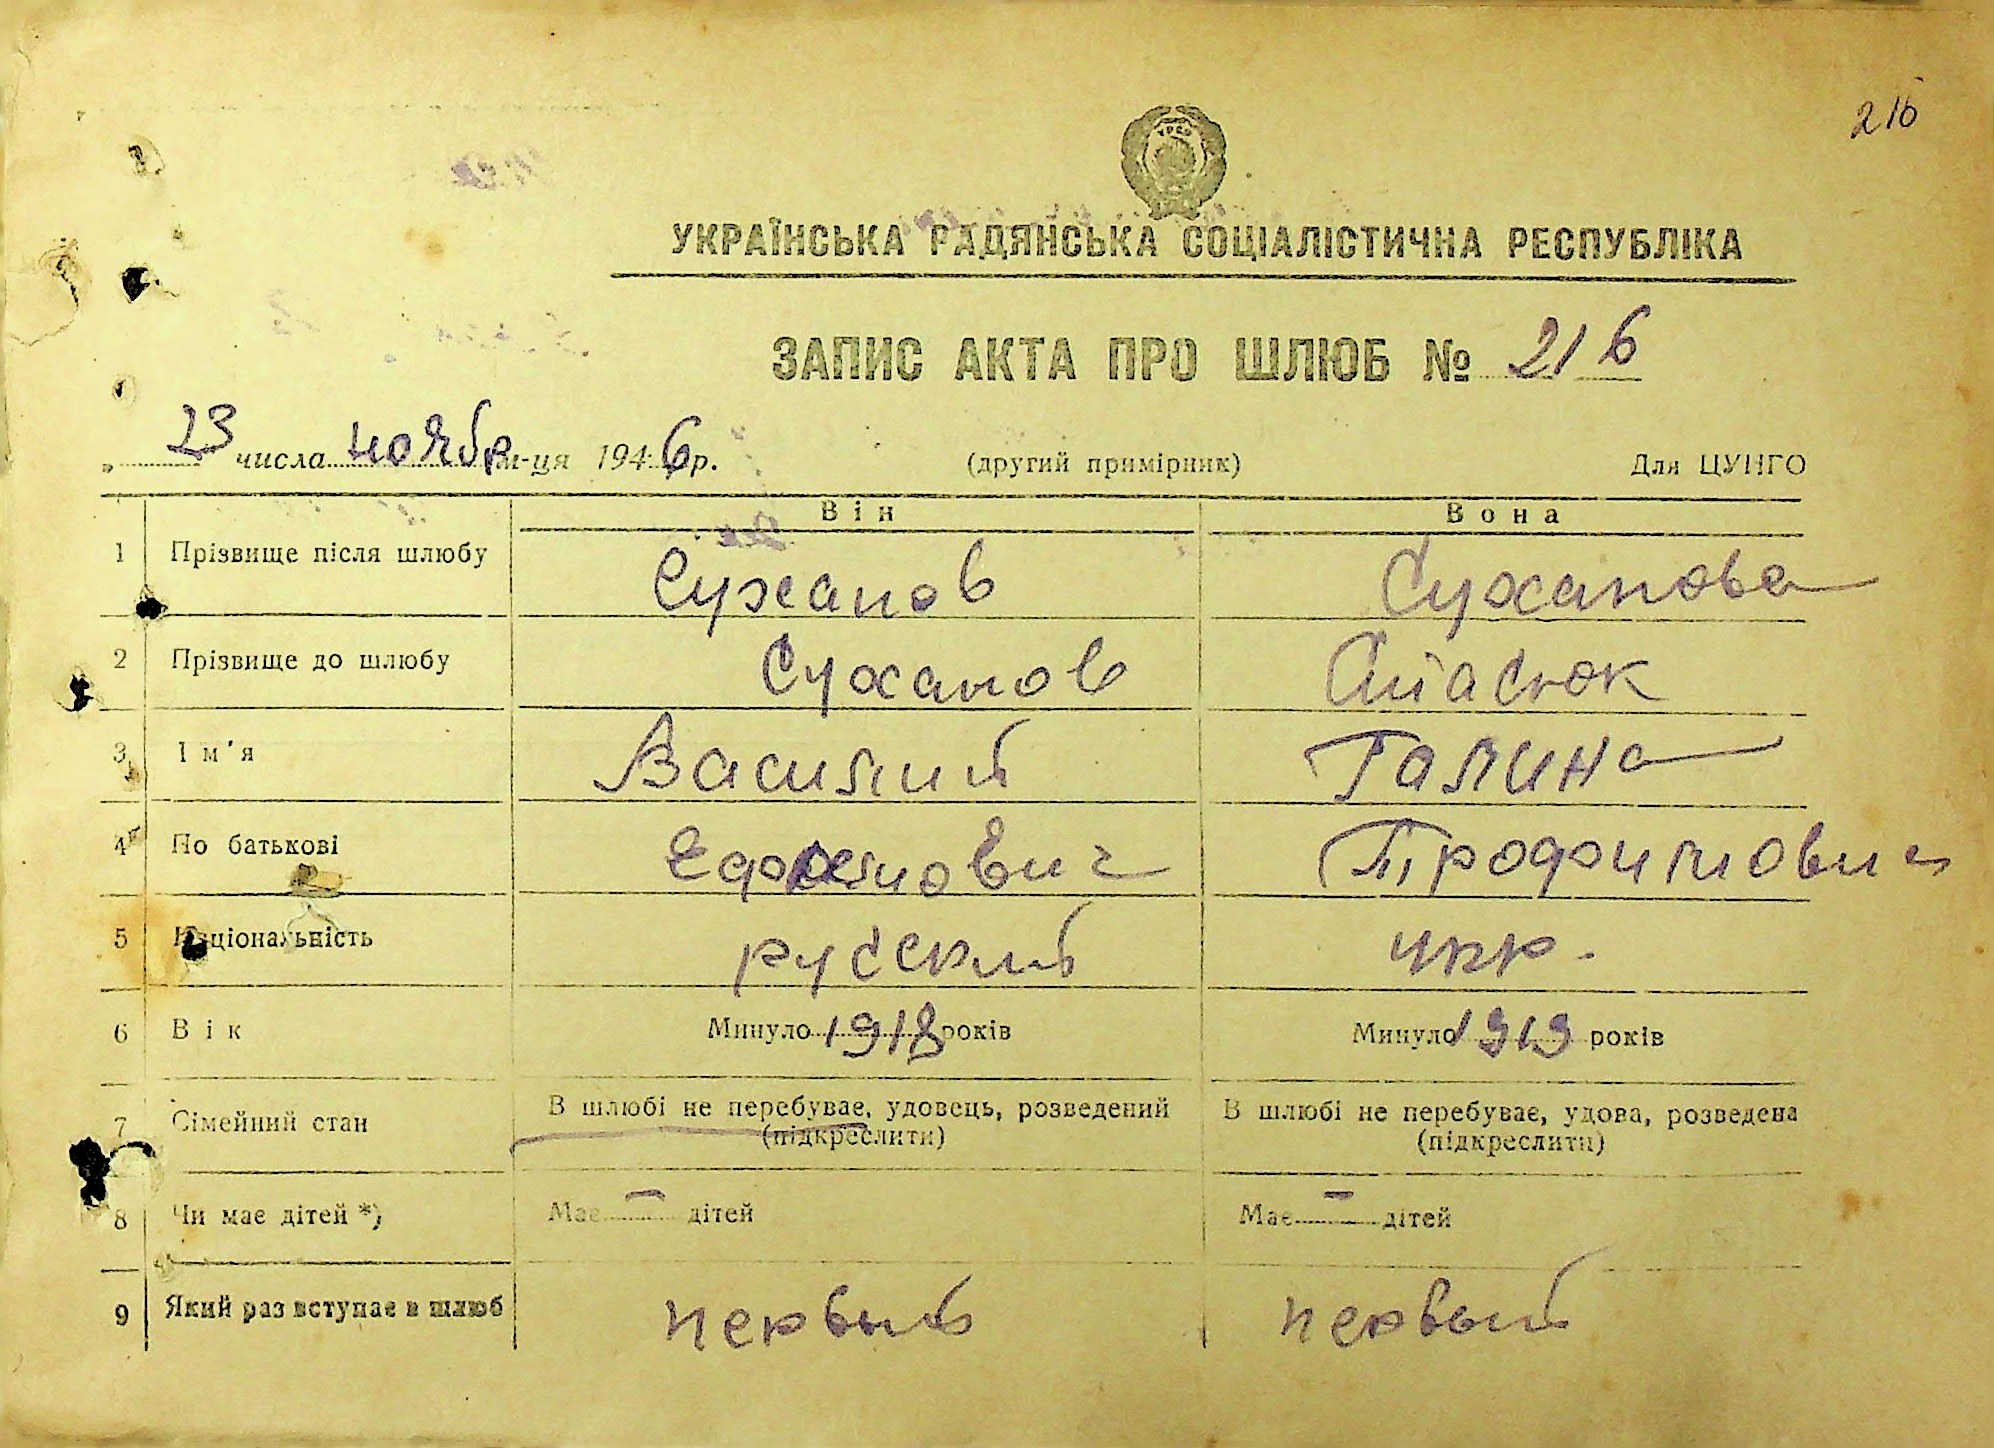 216
УРСР
УКРАЇНСЬКА РАДЯНСЬКА СОЦІАЛІСТИЧНА РЕСПУБЛІКА
ЗАПИС АКТА ПРО ШЛЮБ № 216
„ 23 числа ноябр м-ця 1946 р. (другий примірник) Для ЦУНГО
Він Вона
1 Прізвище після шлюбу Суханов Суханова
2 Прізвище до шлюбу Суханов
3 Ім'я Василий Галина
4 По батькові Трофимович
5 Національність русский укр.
6 Вік Минуло 1918 років Минуло 1919 років
7 Сімейний стан В шлюбі не перебуває, удовець, розведений В шлюбі не перебуває, удова, розведена
(підкреслити) (підкреслити)
8 Чи має дітей *) Має — дітей Має — дітей
9 Який раз вступає в шлюб первый первый